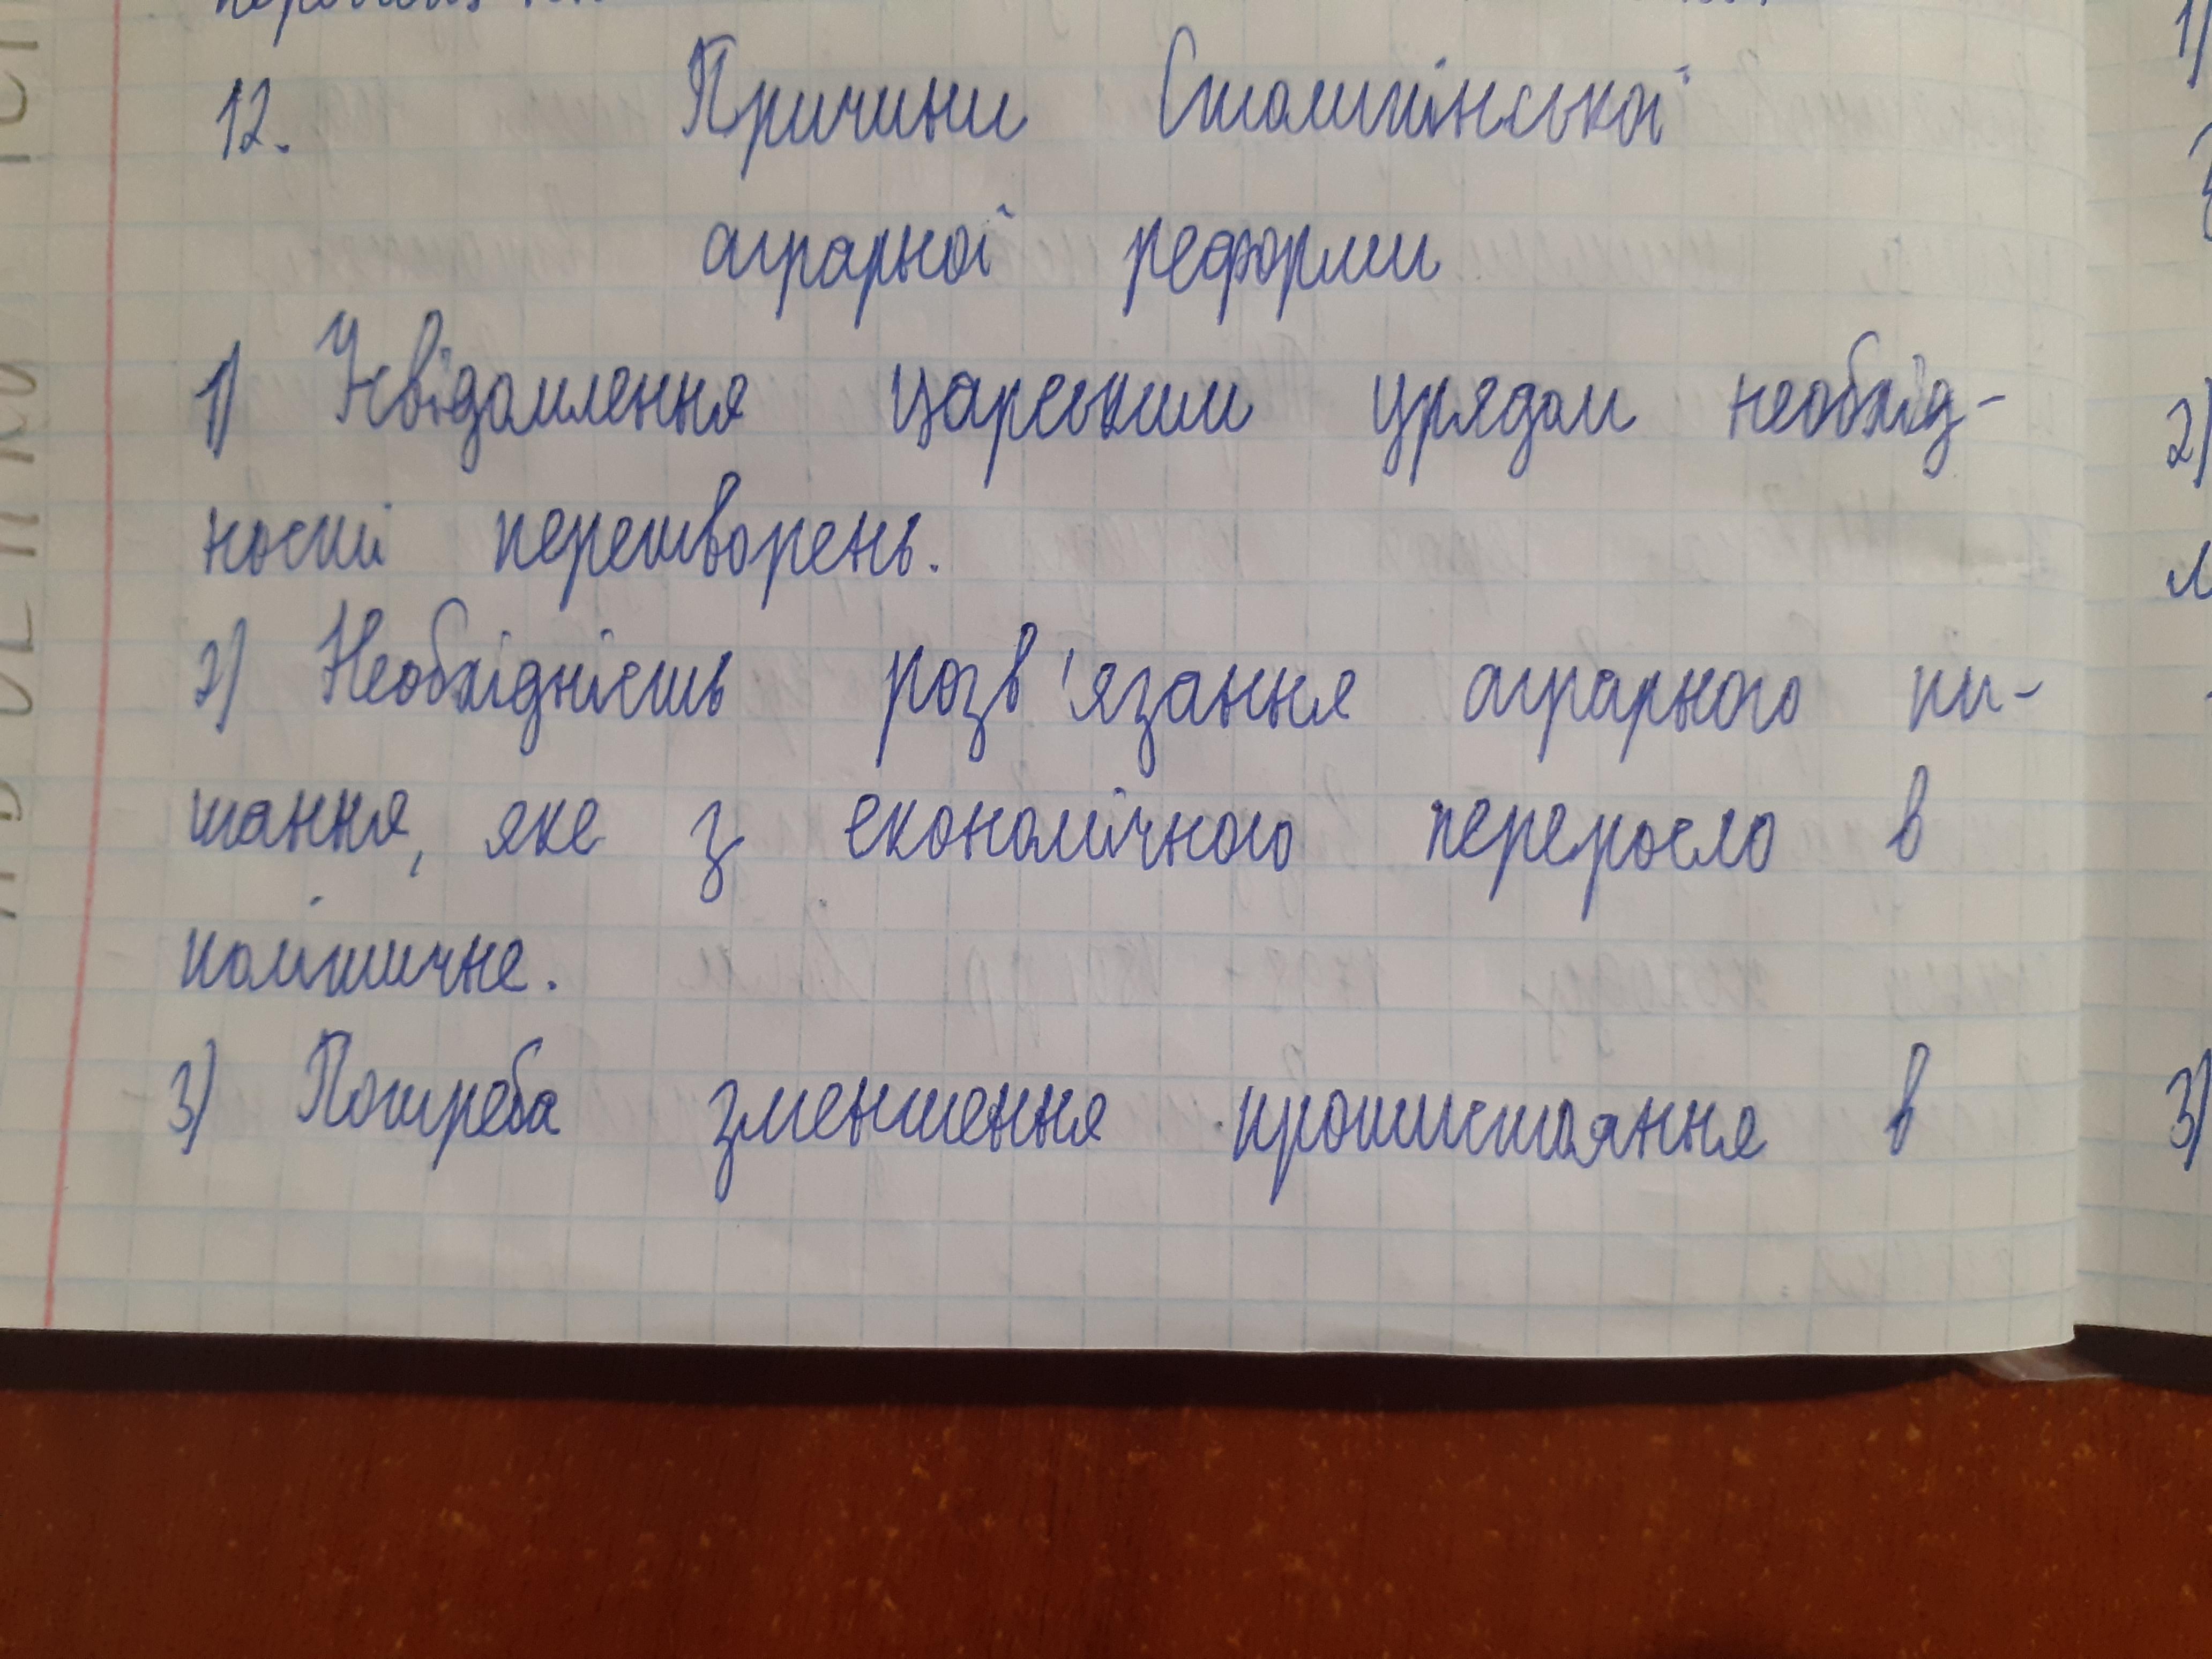 12. Причини Столипінської
аграрної реформи
1) Усвідомлення царським урядом необхід-
ності перетворень.
2) Необхідність розв'язання аграрного пи-
тання, яке з економічного переросло в
політичне.
3) Потреба зменшення протистояння в
1)
2)
3)